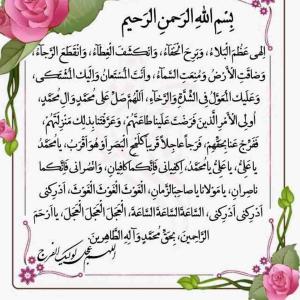 بِسْمِ اللهِ الرَحمنِ الرَحيم
اِلهى عَظُمَ الْبَلاءُ، وَبَرِحَ الْخَفاءُ، وَانْكَشَفَ الْغِطاءُ، وَانْقَطَعَ الرَّجاءُ،
وَضاقَتِ الْاَرْضُ، وَمُنِعَتِ السَّماءُ، واَنْتَ الْمُسْتَعانُ، وَاِلَيْكَ الْمُشْتَكى،
وَعَلَيْكَ الْمُعَوَّلُ فِى الشِّدَّةِ وَالرَّخاءِ، اَللّهُمَّ صَلِّ عَلى مُحَمَّدٍ وَآلِ مُحَمَّدٍ،
اُولِى الْاَمْرِ الَّذينَ فَرَضْتَ عَلَيْنا طاعَتَهُمْ، وَعَرَّفْتَنا بِذلِكَ مَنْزِلَتَهُمْ،
فَفَرِّجْ عَنا بِحَقِّهِمْ، فَرَجاً عاجِلاً قَريباً كَلَمْحِ الْبَصَرِ اَوْ هُوَ اَقْرَبُ، يا مُحَمَّدُ
يا عَلِىُّ، يا عَلِىُّ يا مُحَمَّدُ، اِكْفِيانى فَاِنَّكُما كافِيانِ، وَانْصُرانى فَاِنَّكُما
ناصِرانِ، يا مَوْلانا يا صاحِبَ الزَّمانِ، الْغَوْثَ الْغَوْثَ الْغَوْثَ، اَدْرِكْنى
اَدْرِكْنى اَدْرِكْنى، السّاعَةَ السّاعَةَ السّاعَةَ، الْعَجَلَ الْعَجَلَ الْعَجَلَ، يا اَرْحَمَ
الرّاحِمينَ، بِحَقِّ مُحَمَّدٍ وَآلِهِ الطّاهِرينَ
اللهم عجل لوليك الفرج